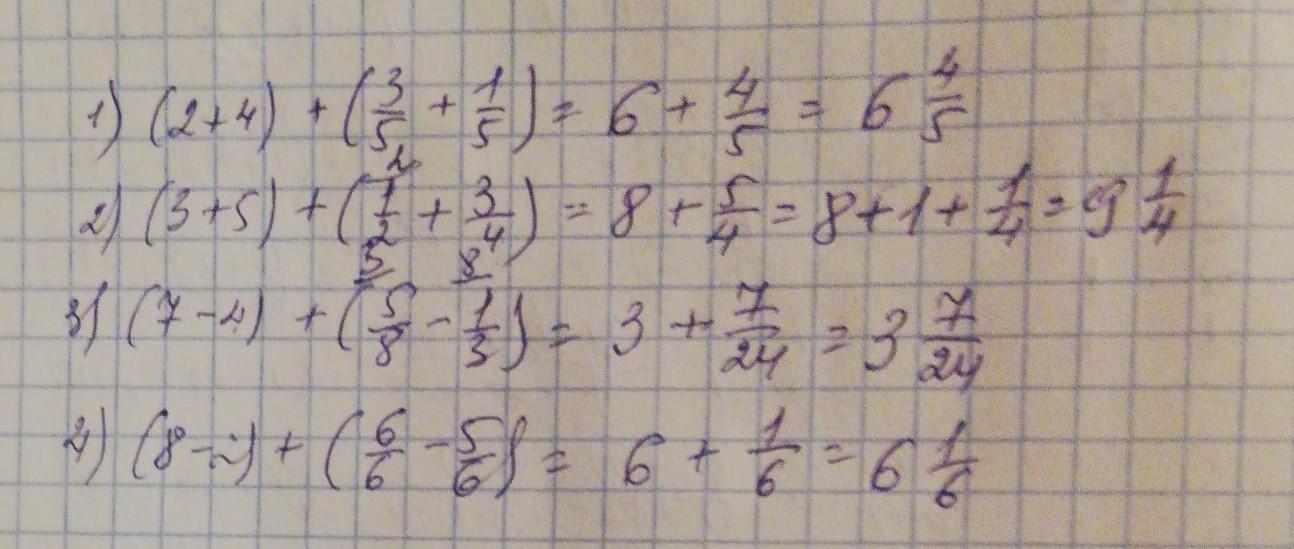 1) (2+4) + (3/5 + 1/5) = 6 + 4/5 = 6 4/5
2) (3+5) + (1/2 ² + 3/4) = 8 + 5/4 = 8+1+ 1/4 = 9 1/4
3) (7-4) + (5/8 ³ - 1/3 ⁸) = 3 + 7/24 = 3 7/24
4) (8-2) + (6/6 - 5/6) = 6 + 1/6 = 6 1/6